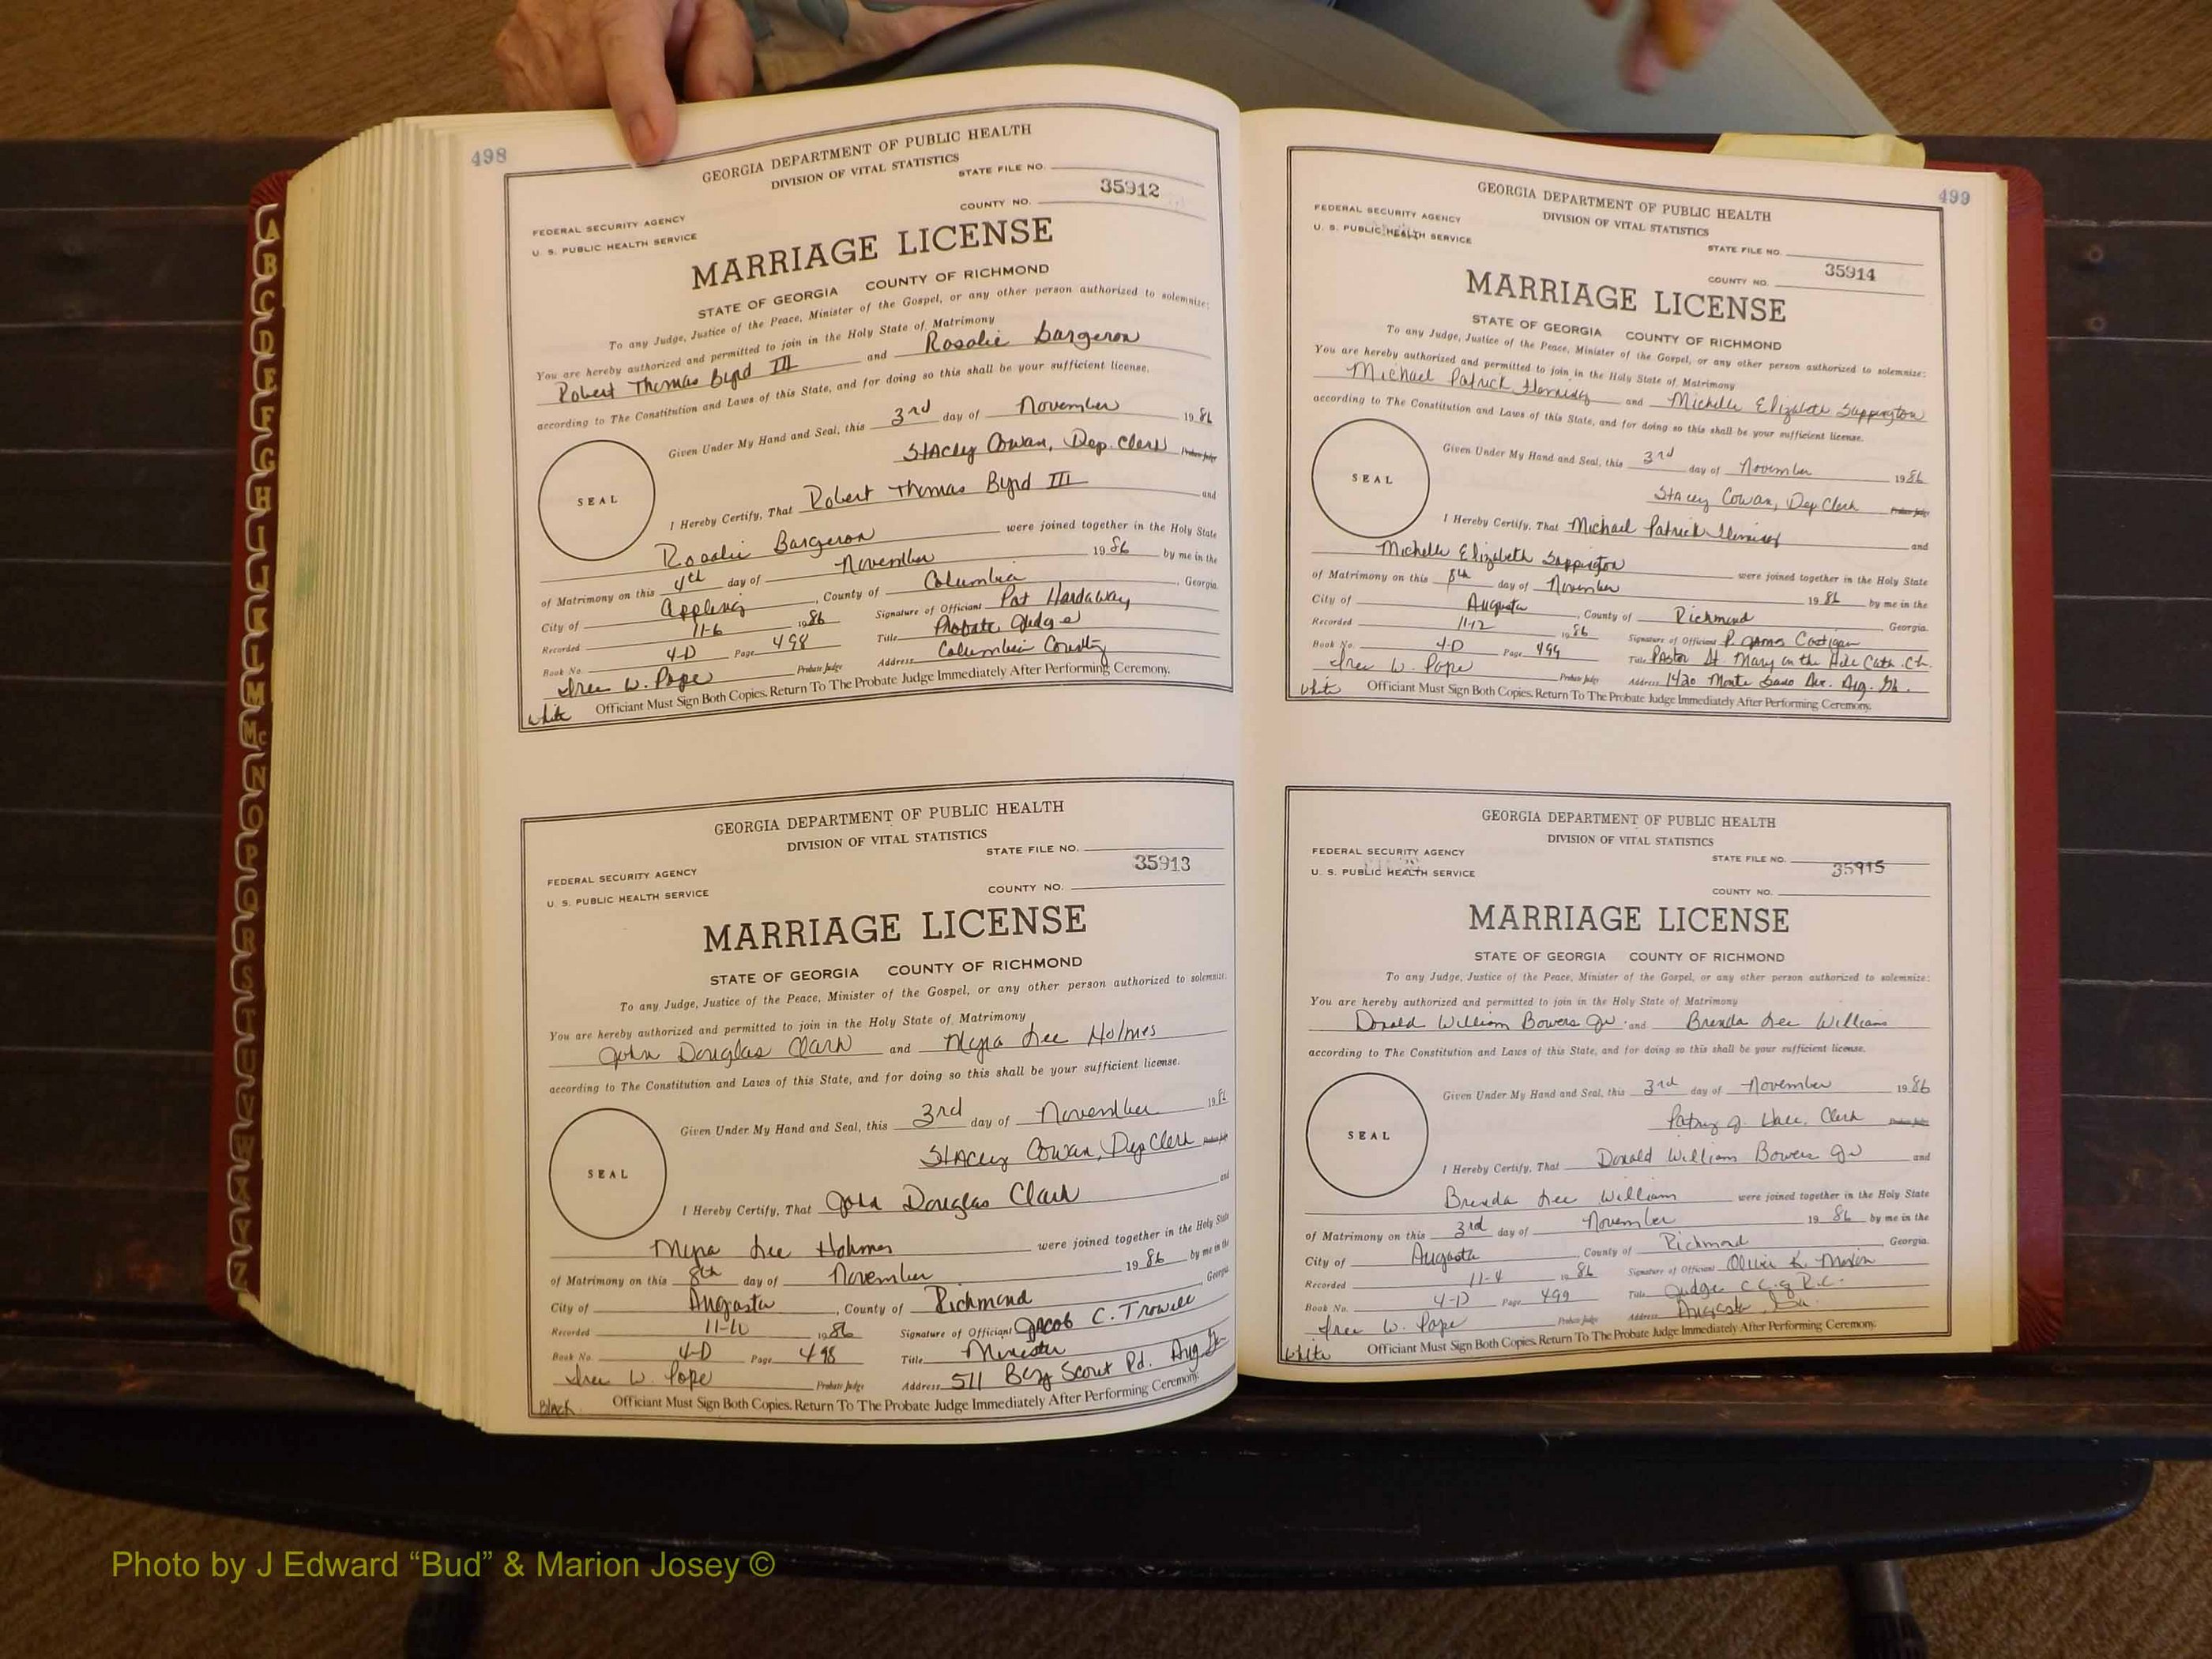 498
GEORGIA DEPARTMENT OF PUBLIC HEALTH
DIVISION OF VITAL STATISTICS
STATE FILE NO.
35912
FEDERAL SECURITY AGENCY
COUNTY NO.
U. S. PUBLIC HEALTH SERVICE
MARRIAGE LICENSE
STATE OF GEORGIA COUNTY OF RICHMOND
To any Judge, Justice of the Peace, Minister of the Gospel, or any other person authorized to solemnize:
You are hereby authorized and permitted to join in the Holy State of Matrimony
Robert Thomas Byrd III and Rosalie Bargeron
according to The Constitution and Laws of this State, and for doing so this shall be your sufficient license.
Given Under My Hand and Seal, this 3rd day of November 1986
Stacey Cowan, Dep. Clerk Probate Judge
SEAL
I Hereby Certify, That Robert Thomas Byrd III and
Rosalie Bargeron were joined together in the Holy State
of Matrimony on this 4th day of November 1986 by me in the
City of Appling, County of Columbia, Georgia
Recorded 11-6 1986 Signature of Official Pat Hardaway
Book No. 4-D Page 498 Title Probate Judge
Iree W. Pope Probate Judge Address Columbia County
White Officiant Must Sign Both Copies. Return To The Probate Judge Immediately After Performing Ceremony.
GEORGIA DEPARTMENT OF PUBLIC HEALTH
DIVISION OF VITAL STATISTICS
STATE FILE NO.
35913
FEDERAL SECURITY AGENCY
COUNTY NO.
U. S. PUBLIC HEALTH SERVICE
MARRIAGE LICENSE
STATE OF GEORGIA COUNTY OF RICHMOND
To any Judge, Justice of the Peace, Minister of the Gospel, or any other person authorized to solemnize:
You are hereby authorized and permitted to join in the Holy State of Matrimony
John Douglas Clark and Myra Lee Holmes
according to The Constitution and Laws of this State, and for doing so this shall be your sufficient license.
Given Under My Hand and Seal, this 3rd day of November 198
Stacey Cowan, Dep Clerk Probate Judge
SEAL
I Hereby Certify, That John Douglas Clark and
Myra Lee Holmes were joined together in the Holy State
of Matrimony on this 8th day of November 1986 by me in the
City of Augusta, County of Richmond, Georgia
Recorded 11-10 1986 Signature of Official Jacob C. Trowell
Book No. 4-D Page 498 Title Minister
Iree W. Pope Probate Judge Address 511 Boy Scout Rd. Aug Ga
Black Officiant Must Sign Both Copies. Return To The Probate Judge Immediately After Performing Ceremony.
499
GEORGIA DEPARTMENT OF PUBLIC HEALTH
DIVISION OF VITAL STATISTICS
FEDERAL SECURITY AGENCY
U. S. PUBLIC HEALTH SERVICE
STATE FILE NO.
35914
COUNTY NO.
MARRIAGE LICENSE
STATE OF GEORGIA COUNTY OF RICHMOND
To any Judge, Justice of the Peace, Minister of the Gospel, or any other person authorized to solemnize:
You are hereby authorized and permitted to join in the Holy State of Matrimony
Michael Patrick and Michelle Elizabeth Sappington
according to The Constitution and Laws of this State, and for doing so this shall be your sufficient license.
Given Under My Hand and Seal, this 3rd day of November 1986
Stacey Cowan, Dep Clerk Probate Judge
SEAL
I Hereby Certify, That Michael Patrick and
Michelle Elizabeth Sappington were joined together in the Holy State
of Matrimony on this 8th day of November 1986 by me in the
City of Augusta, County of Richmond, Georgia.
Recorded 11-12 1986 Signature of Official P. James Costigan
Book No. 4-D Page 499 Title Pastor St. Mary on the Hill Cath. Ch.
Iree W. Pope Probate Judge Address 1420 Monte Sano Ave. Aug. Ga.
White Officiant Must Sign Both Copies. Return To The Probate Judge Immediately After Performing Ceremony.
GEORGIA DEPARTMENT OF PUBLIC HEALTH
DIVISION OF VITAL STATISTICS
FEDERAL SECURITY AGENCY
STATE FILE NO.
35915
U. S. PUBLIC HEALTH SERVICE
COUNTY NO.
MARRIAGE LICENSE
STATE OF GEORGIA COUNTY OF RICHMOND
To any Judge, Justice of the Peace, Minister of the Gospel, or any other person authorized to solemnize:
You are hereby authorized and permitted to join in the Holy State of Matrimony
Donald William Bowers Jr. and Brenda Lee Williams
according to The Constitution and Laws of this State, and for doing so this shall be your sufficient license.
Given Under My Hand and Seal, this 3rd day of November 1986
J. Clerk Probate Judge
SEAL
I Hereby Certify, That Donald William Bowers Jr and
Brenda Lee William were joined together in the Holy State
of Matrimony on this 3rd day of November 1986 by me in the
City of Augusta, County of Richmond, Georgia.
Recorded 11-4 1986 Signature of Official Oliver K. Mixon
Book No. 4-D Page 499 Title Judge C.C. of R.C.
Iree W. Pope Probate Judge Address Augusta, Ga.
White Officiant Must Sign Both Copies. Return To The Probate Judge Immediately After Performing Ceremony.
A
B
C
D
E
F
G
H
I
J
K
L
M
Mc
N
O
P
Q
R
S
T
U
V
W
X
Y
Z
Photo by J Edward “Bud” & Marion Josey ©